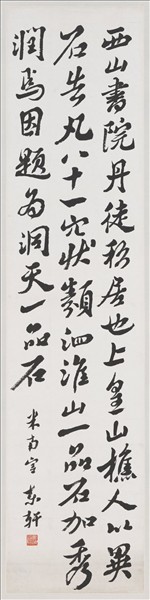 西山書院丹徒私居也上皇山樵人以異
石告凡八十一穴狀類泗淮山一品石加秀
潤焉因題為洞天一品石
米南宮
軒